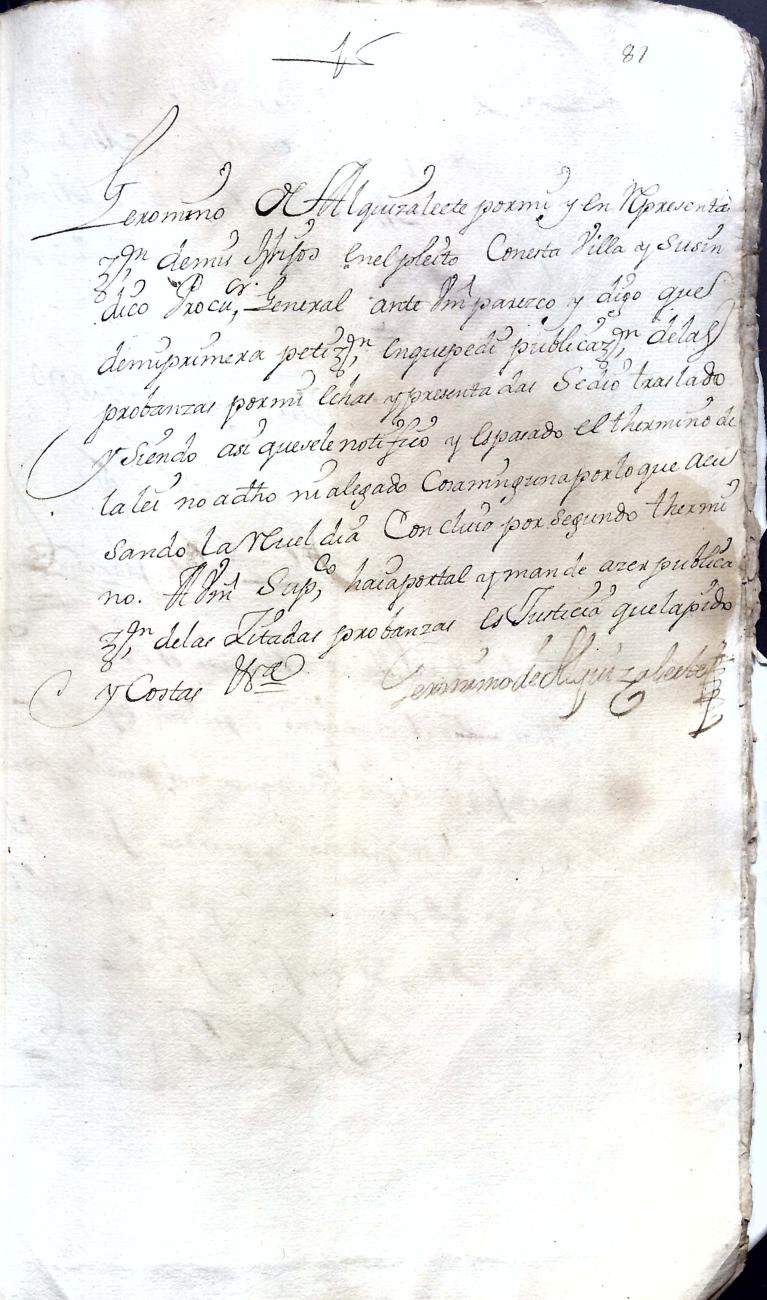 81
Geronimo de Alquizalecte por mi y en Representa
zon de mis Hijos en el pleito Con esta Villa y su sin
dico Procur General ante Vm parezco y digo que
de mi primera petizon en que pedi publicazon de las
probanzas por mi echas y presentadas Se dio traslado
y siendo asi que se le notifico y es pasado el thermino de
la lei no a dho ni alegado Cosa ninguna por lo que acu
sando la Rueldia Concluio por segundo thermi
no. A Vm Supco haia por tal y mande azer publica
zon de las Zitadas probanzas es Justicia que la pido
y Costas
Geronimo de Alquizalecte